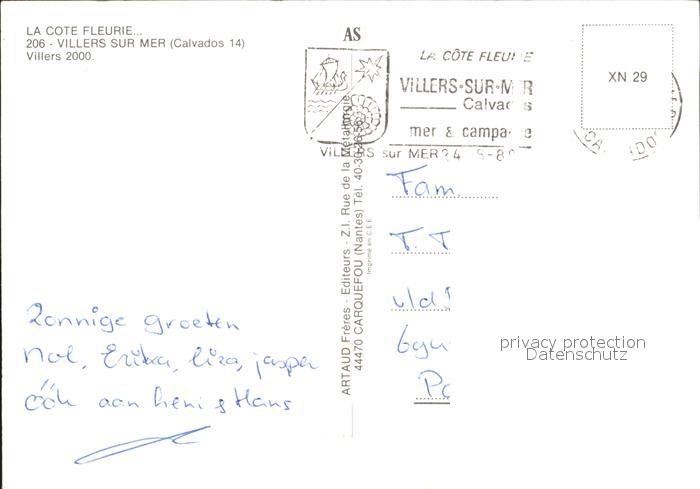 LA COTE FLEURIE...
206 - VILLERS SUR MER (Calvados 14)
Villers 2000.
AS
LA CÔTE FLEURIE
VILLERS-SUR-MER
Calvados
mer & campagne
VILLERS sur MER
XN 29
ARTAUD Frères - Editeurs - Z.I. Rue de la Métallurgie
44470 CARQUEFOU (Nantes) Tél. 40-30-26-56
Imprimé en C.E.E.
Fam.
T. T
Zonnige groeten
Nol, Erika, liza, jasper
Óók aan heni & Hans
privacy protection
Datenschutz